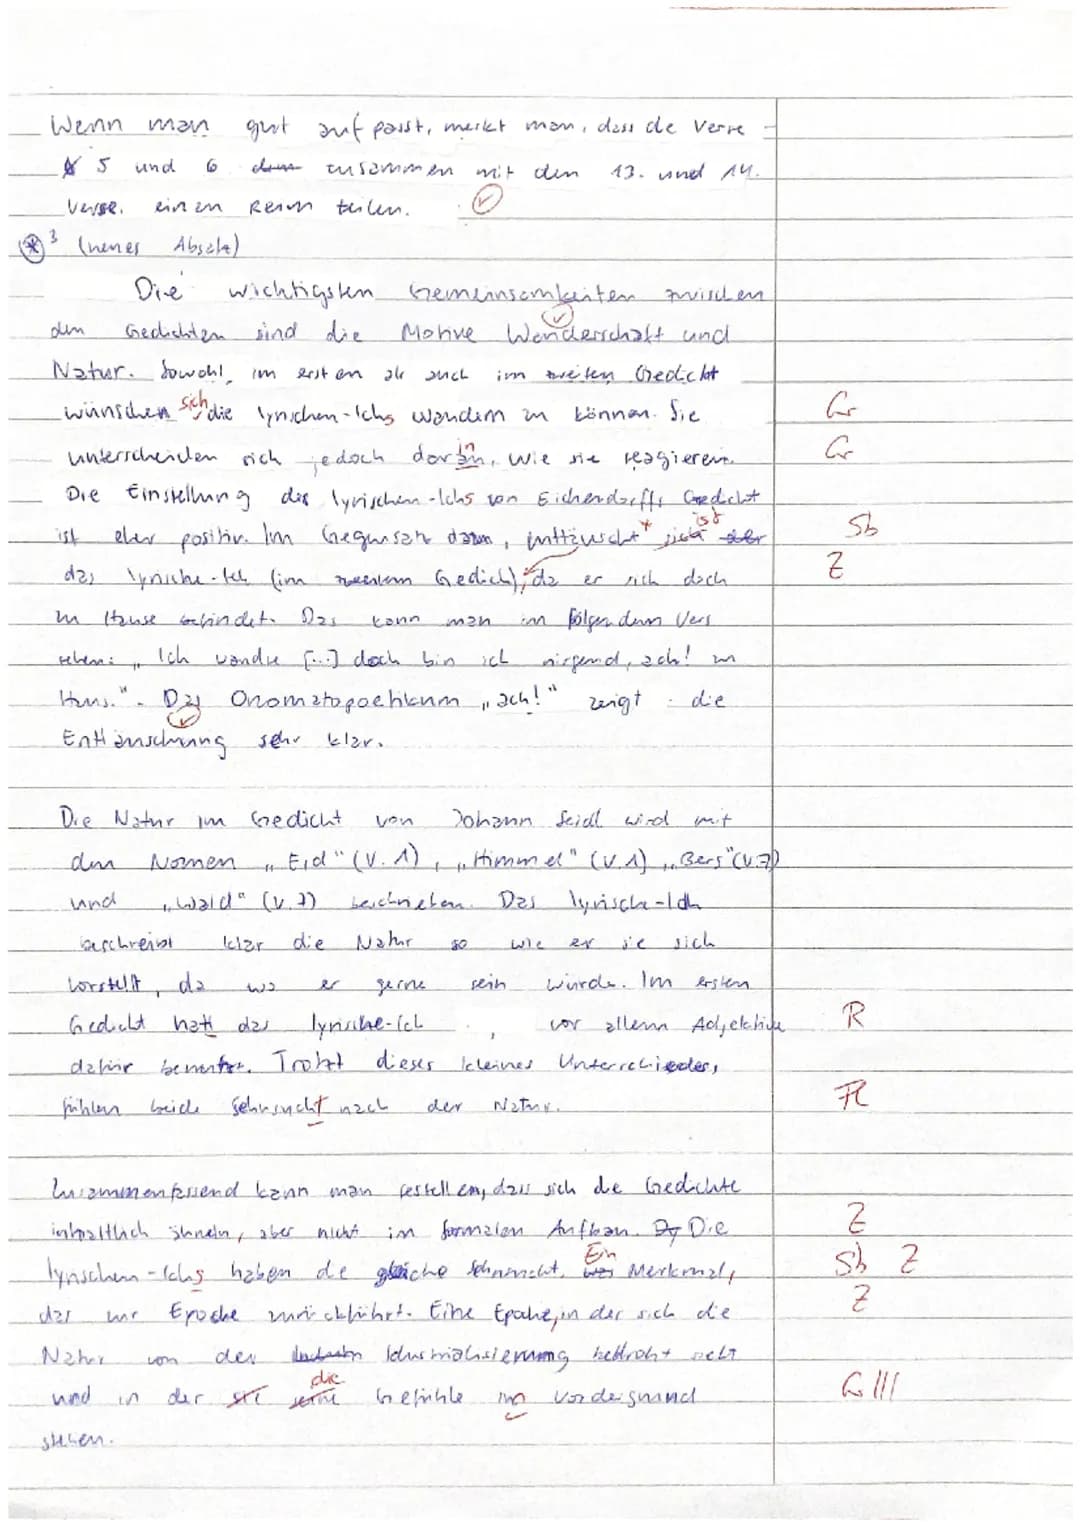 Wenn man gut aufpasst, merkt man, dass de Verse
5 und 6 zusammen mit den 13. und 14.
Verse. einen Reim teilen. ✓
*³ (neues Absatz)
Die wichtigsten Gemeinsamkeiten zwischen
den Gedichten sind die Motive Wanderschaft und
Natur. Sowohl im ersten als auch im zweiten Gedicht
wünschen sich die lyrischen-Ichs wandern zu können. Sie Gr
unterscheiden sich jedoch daran, in wie sie reagieren. Gr
Die Einstellung des lyrischen-Ichs von Eichendorffs Gedicht
ist eher positiv. Im Gegensatz dazu, enttäuscht ist Sb
das lyrische-Ich (im zweitem Gedich), da er sich doch Z
zu Hause befindet. Das kann man im folgendem Vers
sehen: „Ich wandre [...] doch bin ich nirgend, ach! zu
Haus.". Das Onomatopoetikum „ach!" zeigt die
Enttäuschung sehr klar.
Die Natur im Gedicht von Johann Seidl wird mit
den Nomen „Erd" (V. 1), „Himmel" (V. 1), „Berg" (V. 7)
und „Wald" (V. 7) beschrieben. Das lyrische-Ich
beschreibt klar die Natur so wie er sie sich
vorstellt, da wo er gerne sein würde. Im ersten
Gedicht hatt das lyrische-Ich, vor allem Adjektive R
dafür benutzt. Trotzt dieses kleines Unterschiedes,
fühlen beide Sehnsucht nach der Natur. Fl
Zusammenfassend kann man festellen, dass sich die Gedichte
inhaltlich ähneln, aber nicht im formalen Aufbau. Die Z
lyrischen-Ichs haben die gleiche Sehnsucht. Ein Merkmal, Sb Z
das zur Epoche zurückführt. Eine Epoche, in der sich die Z
Natur von der Idustrialisierung bedroht sieht
und in der die Gefühle im Vordergrund G III
stehen.